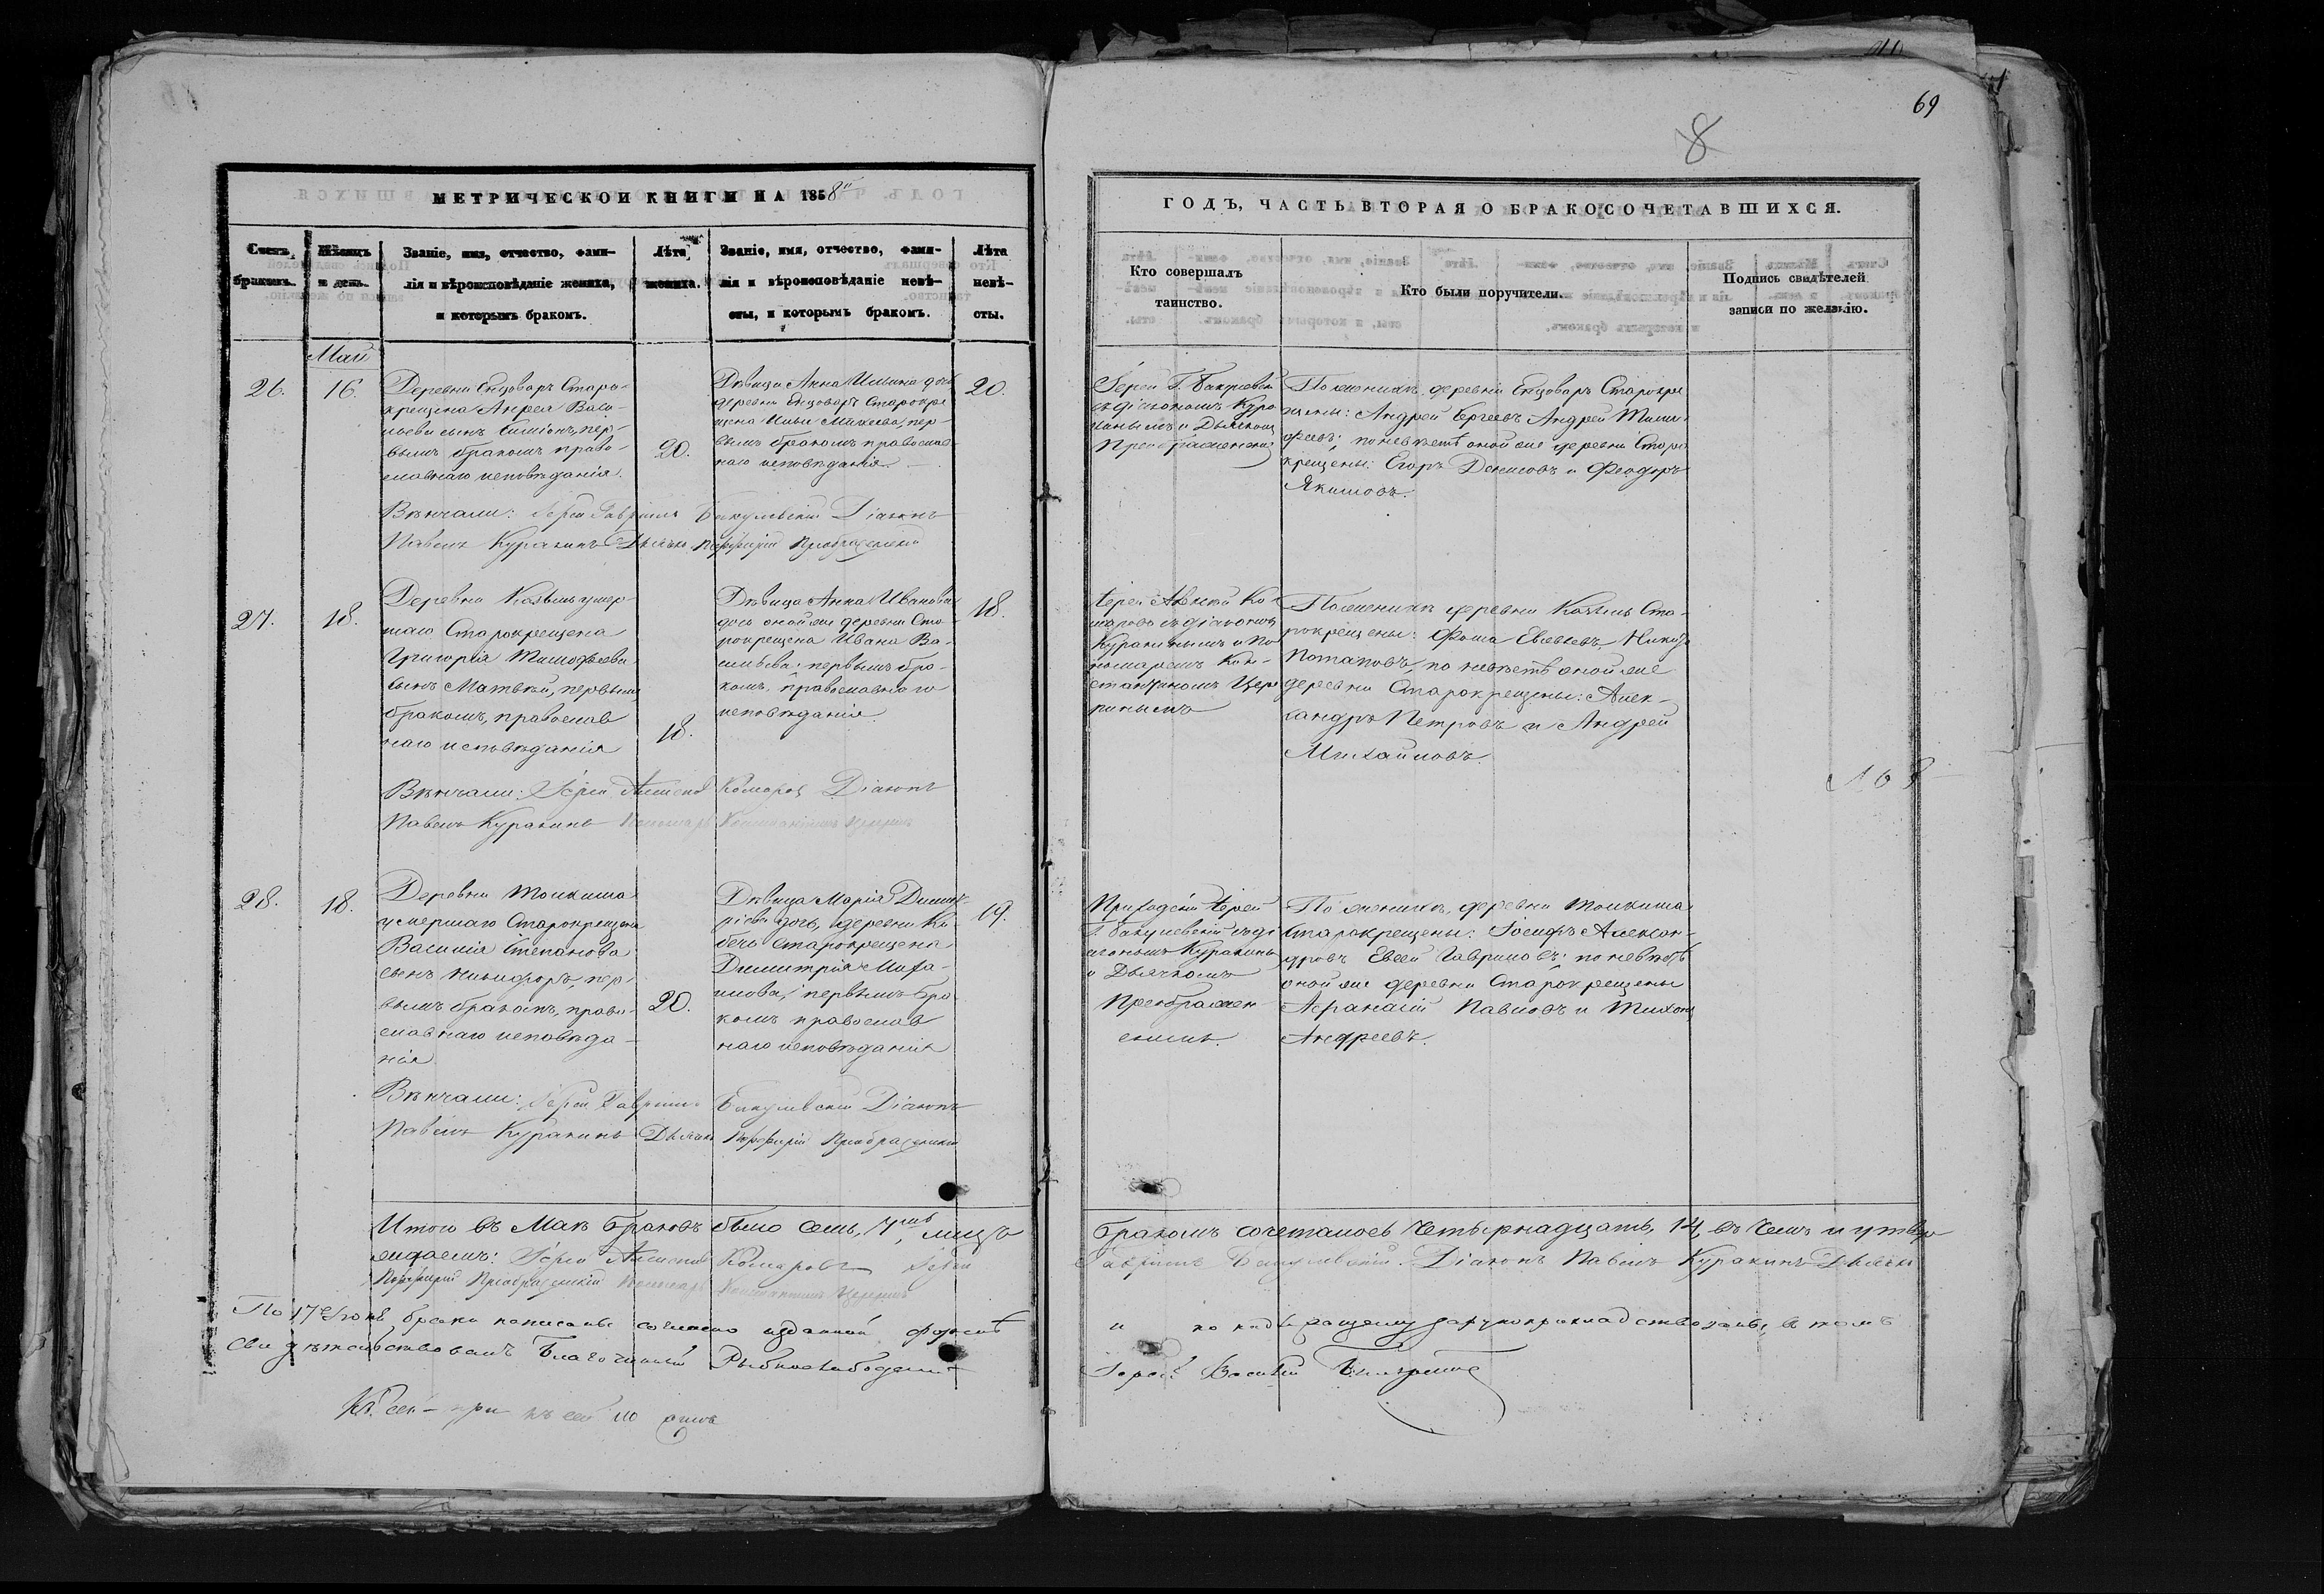 69
8
МЕТРИЧЕСКОИ КНИГИ НА 1858й
Счетъ
браковъ.
Мѣсяцъ
и день.
Званіе, имя, отчество, фами-
лія и вѣроисповѣданіе жениха,
и которымъ бракомъ.
Лѣта
жениха.
Званіе, имя, отчество, фами-
лія и вѣроисповѣданіе невѣ-
сты, и которымъ бракомъ.
Лѣта
невѣ-
сты.
Май
26.
16.
Деревни Ендовары Старо-
крещена Андрея Васи-
льева сынъ Симіонъ, пер-
вымъ бракомъ право-
славнаго исповѣданія.
20.
Дѣвица Анна Ильина дочь
деревни Ендовары Старокре
щена Ильи Михеева, пер-
вымъ бракомъ православ-
наго исповѣданія.
20.
Вѣнчали: Іерей Гавріилъ Бакулевскій Діаконъ
Павелъ Куракинъ Дьячекъ Порфирій Преображенскій
27.
18.
Деревни умер-
шаго Старокрещена
Григорія Тимофѣева
сынъ Матвѣй, первымъ
бракомъ, православ
наго исповѣданія
18.
Дѣвица Анна Иванова
дочь оной же деревни Ста-
рокрещена Ивана Ва-
сильева, первымъ бра-
комъ, православнаго
исповѣданія.
18.
Вѣнчали: Іерей Алексѣй Комаровъ Діаконъ
Павелъ Куракинъ Пономарь Константинъ
28.
18.
Деревни Толкиша
умершаго Старокрещена
Василія Степанова
сынъ Никифоръ, пер-
вымъ бракомъ, право-
славнаго исповѣда-
нія
20.
Дѣвица Марія Димит-
ріева дочь, деревни Ки-
бечь Старокрещена
Димитрія Миха-
илова, первымъ бра
комъ православ
наго исповѣданія
19.
Вѣнчали: Іерей Гавріилъ Бакулевскій Діаконъ
Павелъ Куракинъ Дьячекъ Порфирій Преображенскій
Итого въ Маѣ браковъ было семь, 7мь, лицъ
ждаемъ: Іерей Алексѣй Комаровъ Іерей
Порфирій Преображенскій Пономарь Константинъ
По 17е Іюня браки написаны согласно изданной формѣ
свидѣтельствовалъ Благочинный Рыбнослободскій
ГОДЪ, ЧАСТЬ ВТОРАЯ О БРАКОСОЧЕТАВШИХСЯ.
Кто совершалъ
таинство.
Кто были поручители.
Подпись свидѣтелей
записи по желанію.
Іерей Г. Бакулевскій
съ діакономъ Кура
кинымъ и Дьячкомъ
Преображенскимъ
По женихѣ деревни Ендовары Старокре
щены: Андрей Сергеевъ Андрей Тимо-
феевъ; по невѣстѣ оной же деревни Старо
крещены: Егоръ Денисовъ и Феодоръ
Якимовъ.
Іерей Алексѣй Ко-
маровъ съ діакономъ
Куракинымъ и По
номаремъ Кон-
стантиномъ
По женихѣ деревни Ста-
рокрещены: Фома Евсевьевъ, Никита
Потаповъ, по невѣстѣ оной же
деревни Старокрещены: Алек-
сандръ Петровъ и Андрей
Михайловъ.
Приходскій Іерей
Г. Бакулевскій съ ді
акономъ Куракинымъ
и Дьячкомъ
Преображен
скимъ.
По женихѣ, деревни Толкиша
Старокрещены: Іосифъ Алексан-
дровъ Евсей Гавриловъ; по невѣстѣ
оной же деревни Старокрещены
Афанасій Павловъ и Тихонъ
Андреевъ.
бракомъ сочеталось четырнадцать, 14, въ чемъ и утвер
Гавріилъ Бакулевскій. Діаконъ Павелъ Куракинъ Дьячекъ
и по надлежащему зарукоприкладствованы, въ томъ
Іерей Василій